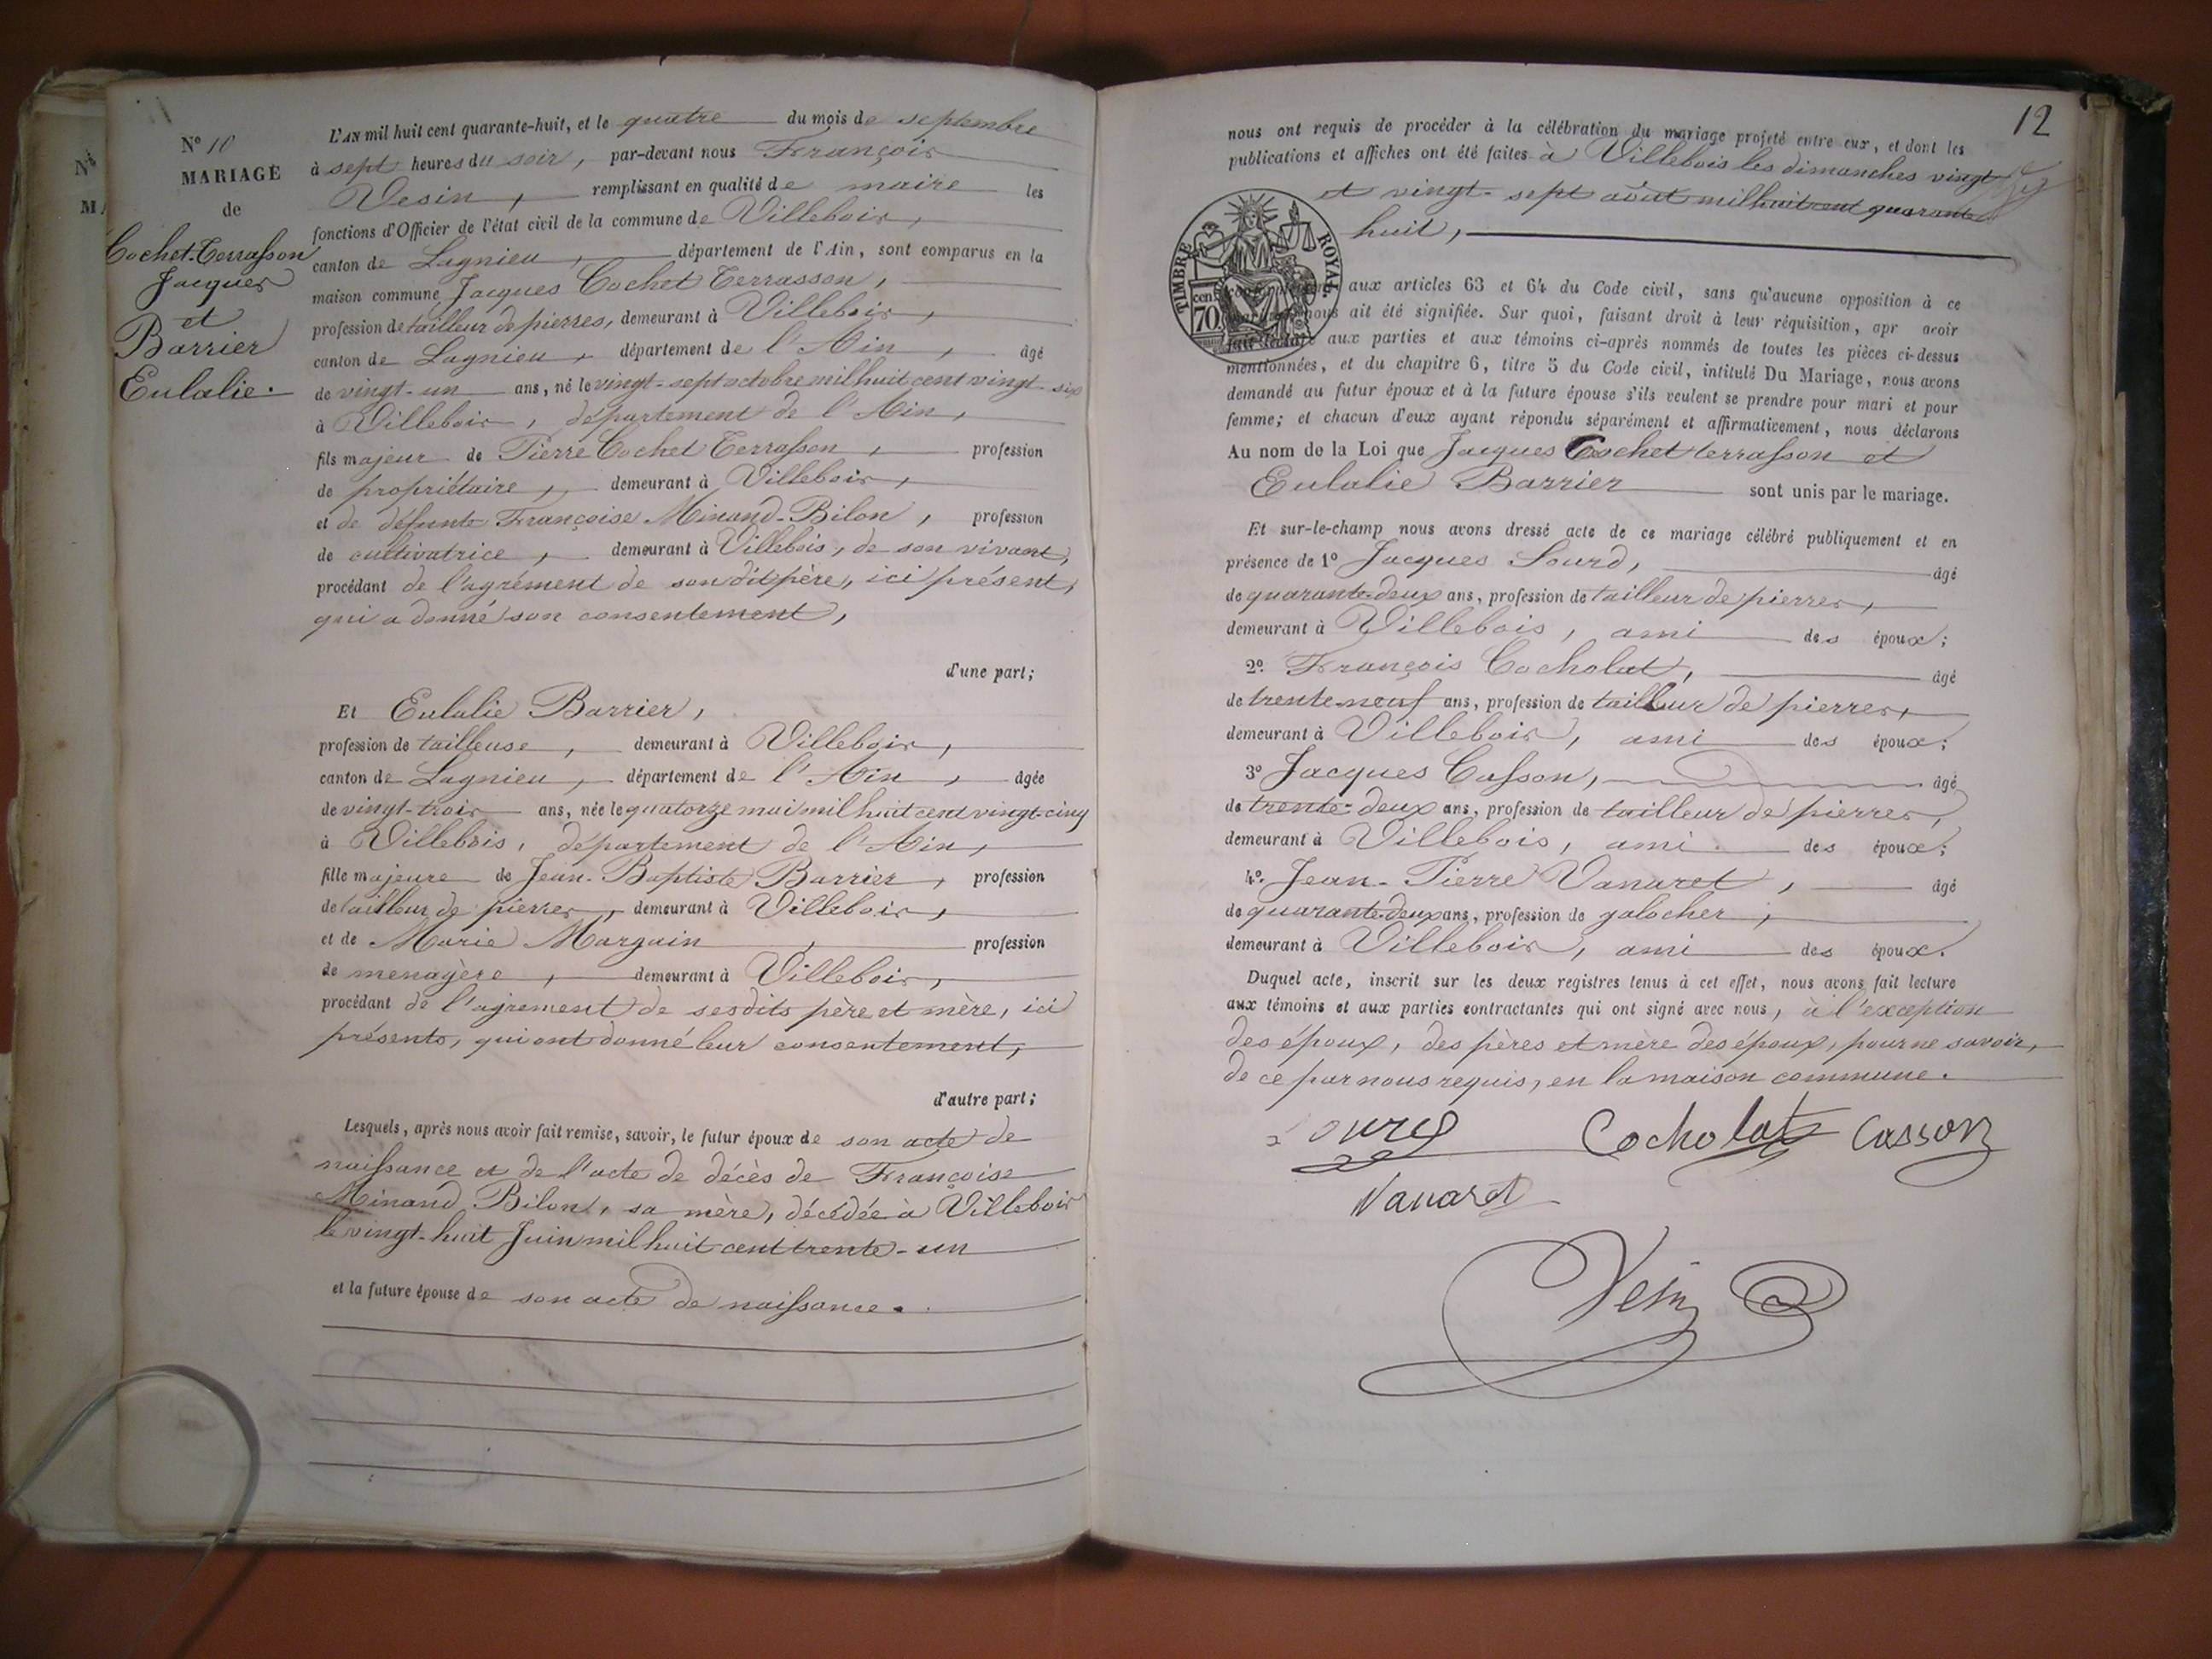 Nº 10
MARIAGE
de
Cochet-Terrasson
Jacques
et
Barrier
Eulalie.
L'AN mil huit cent quarante-huit, et le quatre du mois de septembre
à sept heures du soir, par-devant nous François
Vesin, remplissant en qualité de maire les
fonctions d'Officier de l'état civil de la commune de Villebois,
canton de Lagnieu, département de l'Ain, sont comparus en la
maison commune Jacques Cochet Terrasson,
profession de tailleur de pierres, demeurant à Villebois,
canton de Lagnieu, département de l'Ain, âgé
de vingt-un ans, né le vingt-sept octobre mil huit cent vingt-six
à Villebois, département de l'Ain,
fils majeur de Pierre Cochet Terrasson, profession
de propriétaire, demeurant à Villebois,
et de défunte Françoise Minand-Bilon, profession
de cultivatrice, demeurant à Villebois, de son vivant,
procédant de l'agrément de son dit père, ici présent,
qui a donné son consentement,
d'une part;
Et Eulalie Barrier,
profession de tailleuse, demeurant à Villebois,
canton de Lagnieu, département de l'Ain, âgée
de vingt-trois ans, née le quatorze mai mil huit cent vingt-cinq
à Villebois, département de l'Ain,
fille majeure de Jean-Baptiste Barrier, profession
de tailleur de pierres, demeurant à Villebois,
et de Marie Margain, profession
de menagère, demeurant à Villebois,
procédant de l'agrement de sesdits père et mère, ici
présents, qui ont donné leur consentement,
d'autre part;
Lesquels, après nous avoir fait remise, savoir, le futur époux de son acte de
naissance et de l'acte de décès de Françoise
Minand Bilon, sa mère, décédée à Villebois
le vingt-huit Juin mil huit cent trente-un
et la future épouse de son acte de naissance.
12
nous ont requis de procéder à la célébration du mariage projeté entre eux, et dont les
publications et affiches ont été faites à Villebois les dimanches vingt
et vingt-sept août mil huit cent quarante
huit,
TIMBRE ROYAL
70
aux articles 63 et 64 du Code civil, sans qu'aucune opposition à ce
nous ait été signifiée. Sur quoi, faisant droit à leur réquisition, apr avoir
fait lecture aux parties et aux témoins ci-après nommés de toutes les pièces ci-dessus
mentionnées, et du chapitre 6, titre 5 du Code civil, intitulé Du Mariage, nous avons
demandé au futur époux et à la future épouse s'ils veulent se prendre pour mari et pour
femme; et chacun d'eux ayant répondu séparément et affirmativement, nous déclarons
Au nom de la Loi que Jacques Cochet terrasson et
Eulalie Barrier sont unis par le mariage.
Et sur-le-champ nous avons dressé acte de ce mariage célébré publiquement et en
présence de 1º Jacques Sourd, âgé
de quarante-deux ans, profession de tailleur de pierres,
demeurant à Villebois, ami des époux;
2º. François Cocholat, âgé
de trente-neuf ans, profession de tailleur de pierres,
demeurant à Villebois, ami des époux;
3º Jacques Casson, âgé
de trente-deux ans, profession de tailleur de pierres,
demeurant à Villebois, ami des époux;
4º. Jean-Pierre Vanaret, âgé
de quarante-deux ans, profession de galocher,
demeurant à Villebois, ami des époux.
Duquel acte, inscrit sur les deux registres tenus à cet effet, nous avons fait lecture
aux témoins et aux parties contractantes qui ont signé avec nous, à l'exception
des époux, des pères et mère des époux, pour ne savoir,
de ce par nous requis, en la maison commune.
Sourd Cocholat Casson
Vanaret
Vesin